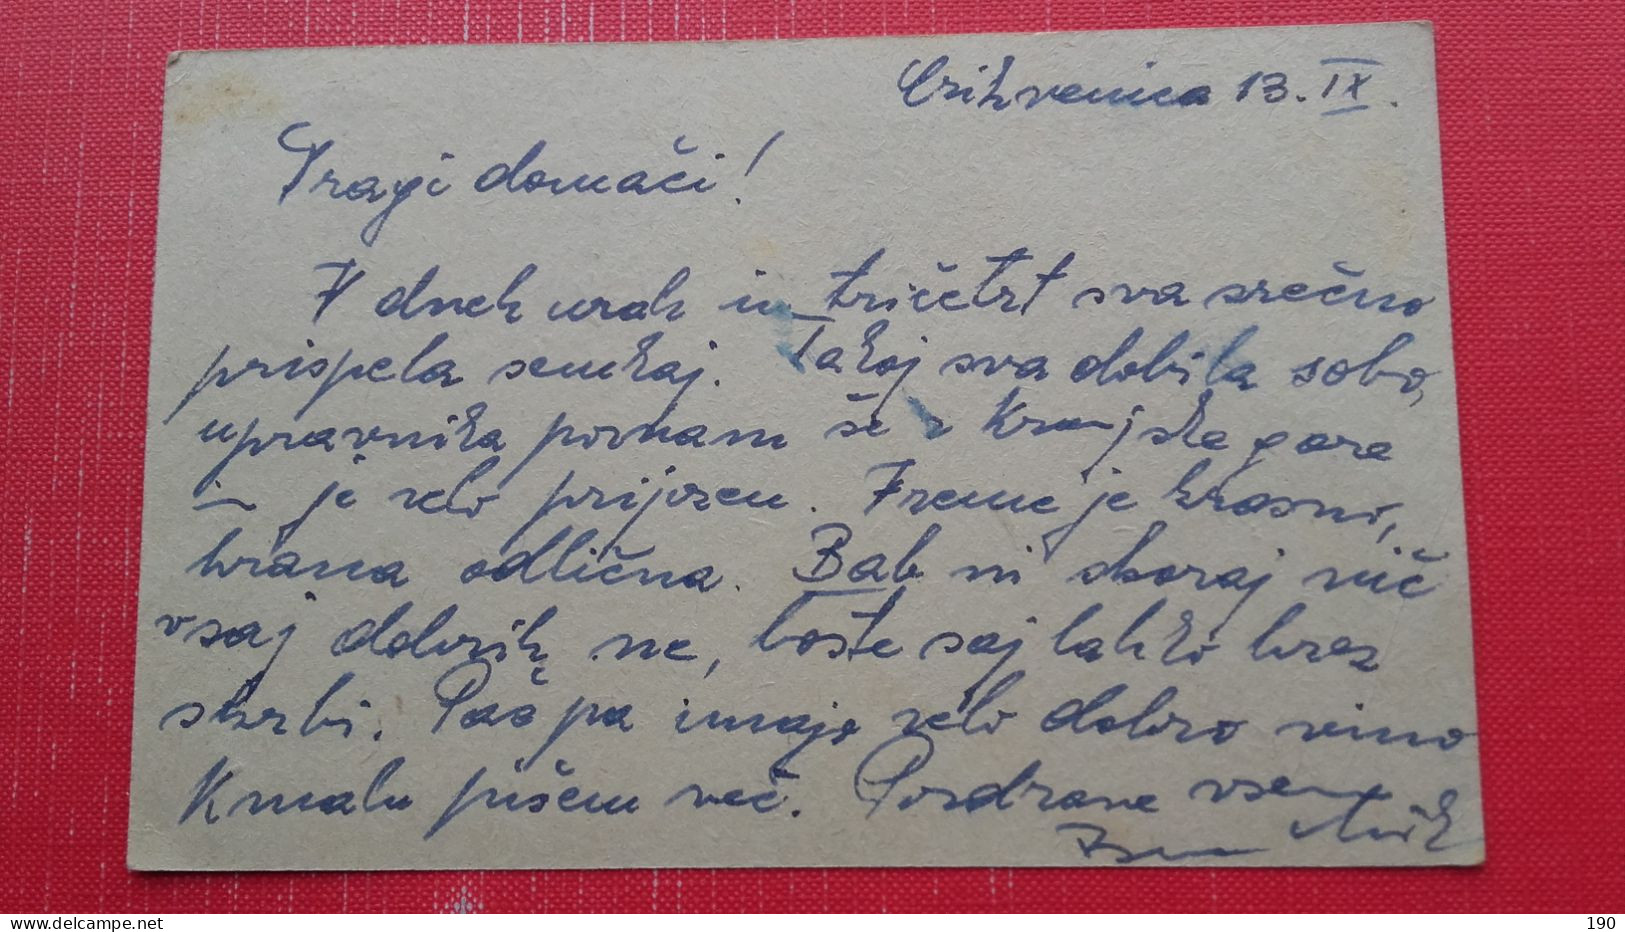 Crikvenica 13. IX.
Dragi domači!
V dneh urah in tričetrt sva srečno
prispela semkaj. Takoj sva dobila sobo,
upravnika poznam še z Kranjske gore
– je zelo prijazen. Vreme je krasno,
hrana odlična. Bab ni skoraj nič
vsaj dobrih ne, boste saj lahko brez
skrbi. Pač pa imajo zelo dobro vino
Kmalu pišem več. Pozdrave vsem
190